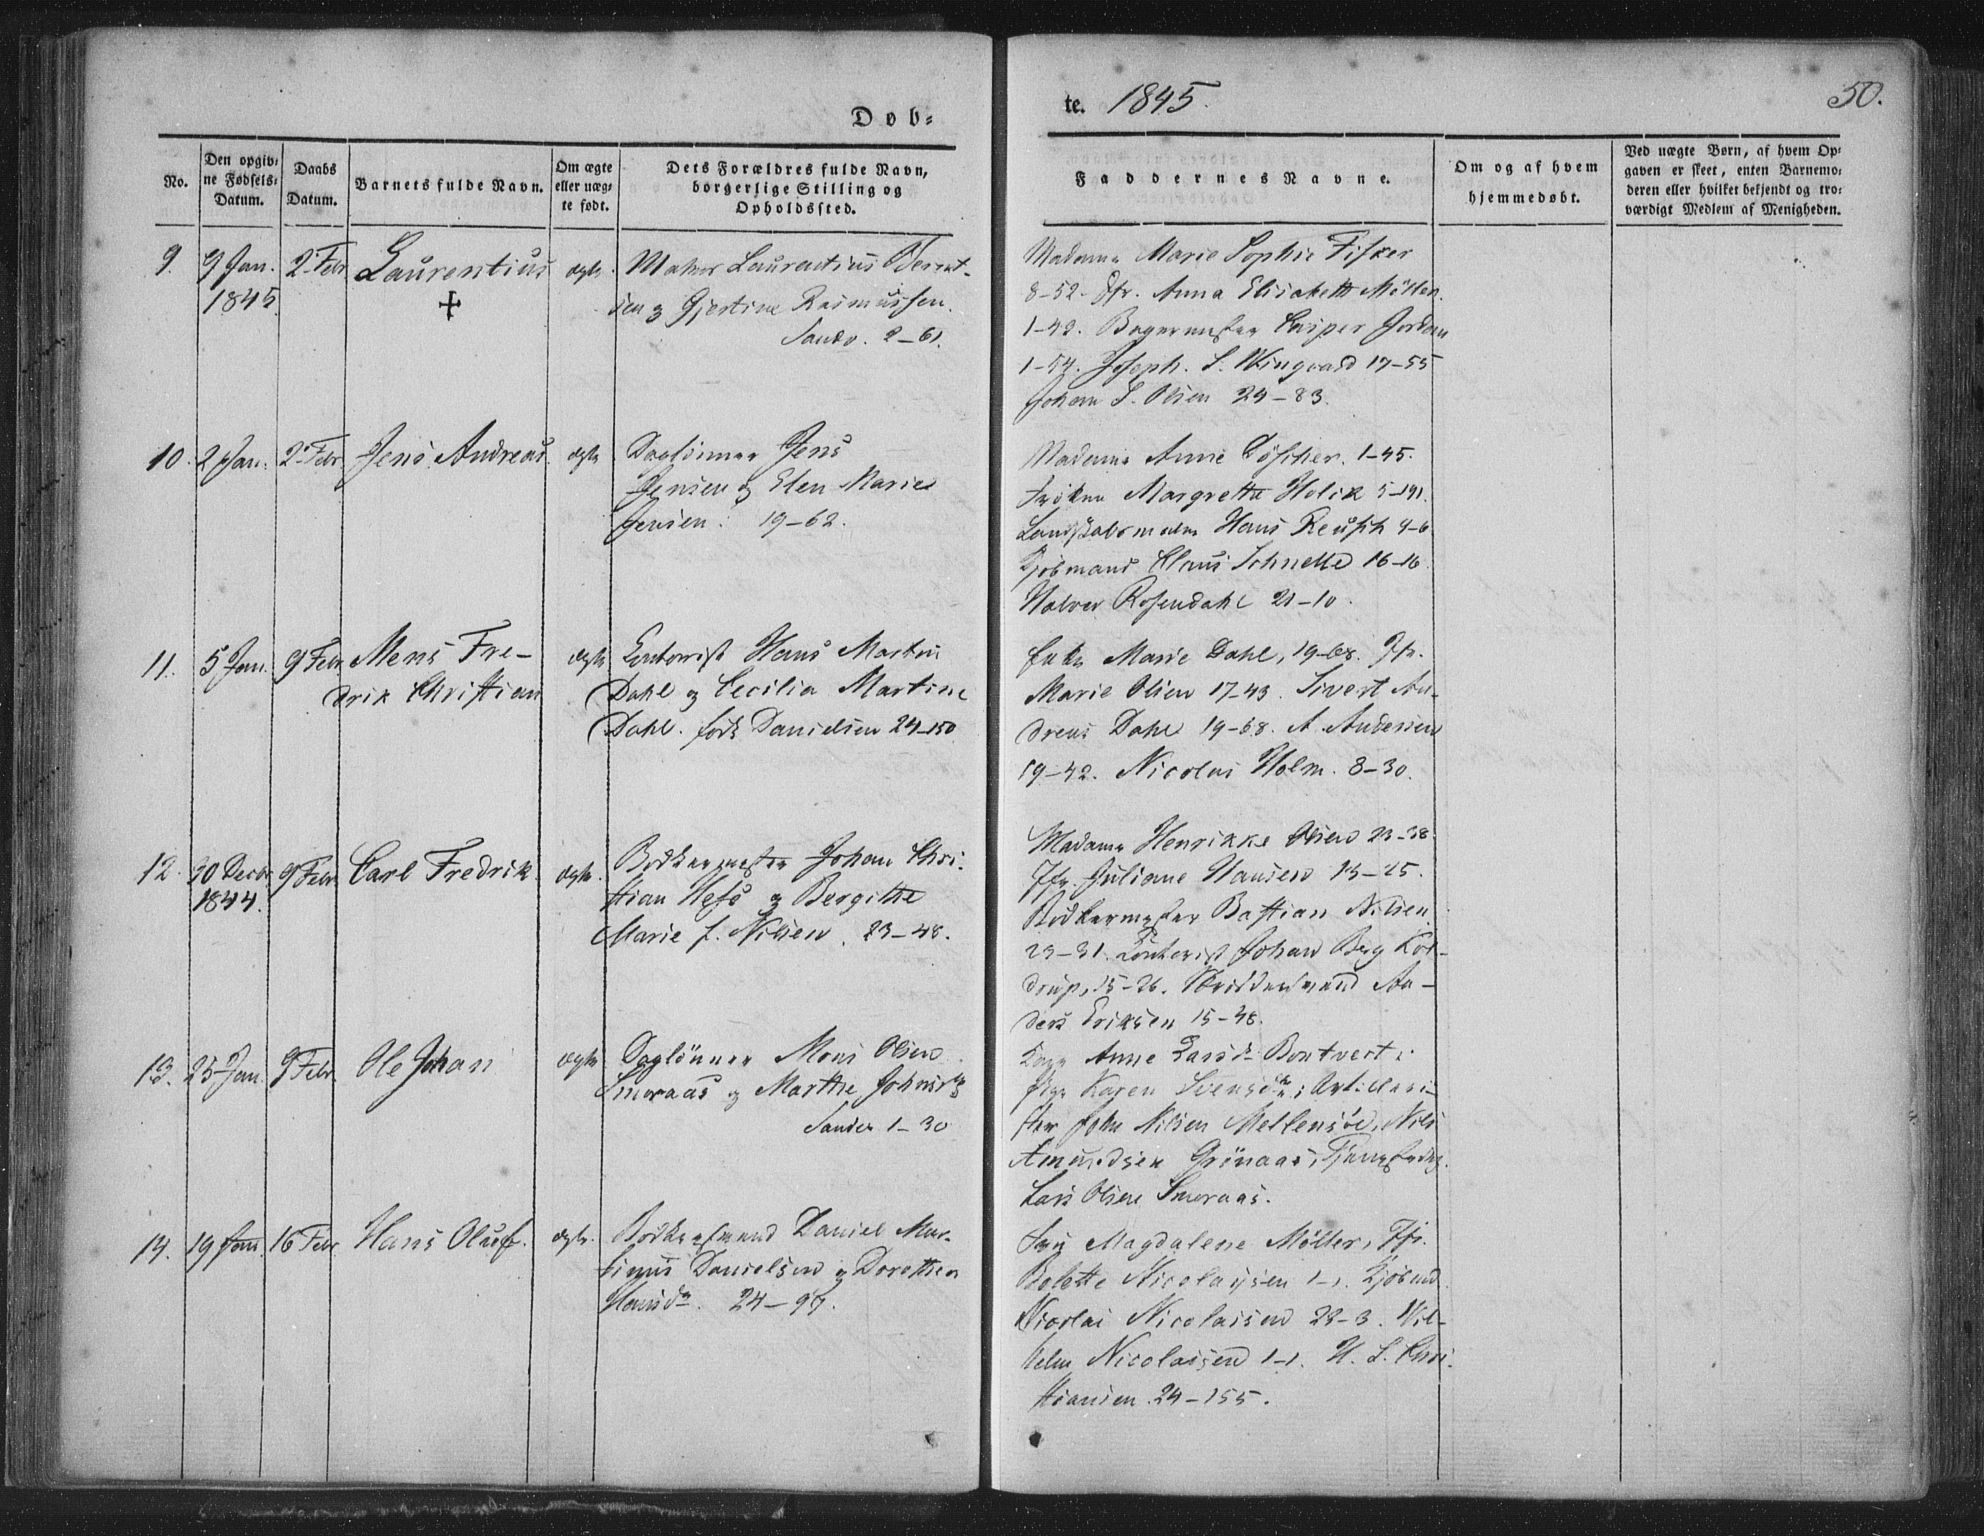 Døb-
te. 1845.
50.
No.
Den opgiv-
ne Fødsels-
Datum.
Daabs
Datum.
Barnets fulde Navn.
Om ægte
eller uæg-
te født.
Dets Forældres fulde Navn,
borgerlige Stilling og
Opholdssted.
Faddernes Navne.
Om og af hvem
hjemmedøbt.
Ved uægte Børn, af hvem Op-
gaven er skeet, enten Barnemo-
deren eller hvilket bekjendt og tro-
værdigt Medlem af Menigheden.
9. 9 Jan. 2 Febr Laurentius ægte
1845.
+
Laurentius Berent-
sen og Gjertine Rasmussen.
Sandv. 2-61.
Madame Marie Sophie Fisker
8-52. Jfr. Anna Elisabeth Møller
1-42. Bagermester Casper Jordan
1-54. Joseph. S. Wingaard 17-55
Johan S. Olsen 24-83.
10. 2 Jan. 2 Febr Jens Andreas ægte
Jens
Jensen og Elen Marie
Jensen. 19-62.
Madame Anne 1-45.
Frøken Margrethe Holck 5-191.
Hans Reusch 4-6
Kjøbmand Claus 16-16.
Halvor Rosendahl 21-10.
11. 5 Jan. 9 Febr Mens Fre-
drik Christian
ægte
Contorist Hans Martin
Dahl og Cecilia Martine
Dahl. født Danielsen 24-150
Enke Marie Dahl, 19-68. Jfr.
Marie Olsen 17-43. Sivert An-
dreas Dahl 19-68. A. Andersen
19-42. Nicolai Holm. 8-30.
12. 30 Decbr 9 Febr. Carl Fredrik ægte.
1844.
Bødkermester Johan Chri-
stian Hess og Bergitte
Marie f. Nilsen. 23-48.
Madame Henrikke Olsen 23-38.
Jfr. Juliane Hansen 15-25.
Bødkermester Bastian Nilsen
23-31. Contorist Johan Berg Kol-
drup, 15-26. An-
ders Eriksen 15-48.
13. 25 Jan. 9 Febr. Ole Johan ægte
Daglønner Mons Olsen
Smøraas og Marthe
Sandv. 1-30
Kone Anne
Pige Karen ; Artilleri-
ster John Nilsen Nils
Amundsen
Lars Olsen Smøraas.
14. 19 Jan. 16 Febr. Hans Oluf. ægte.
Bødkersvend Daniel Mar-
tinus Danielsen og Dorothea
Hansdr. 24-97.
Magdalene Møller, Jfr.
Bolette Nicolaysen 1-1. Kjøbmd
Nicolai Nicolaisen 22-3. Wil-
helm Nicolaisen 1-1. H. S. Chri-
stiansen. 24-155.